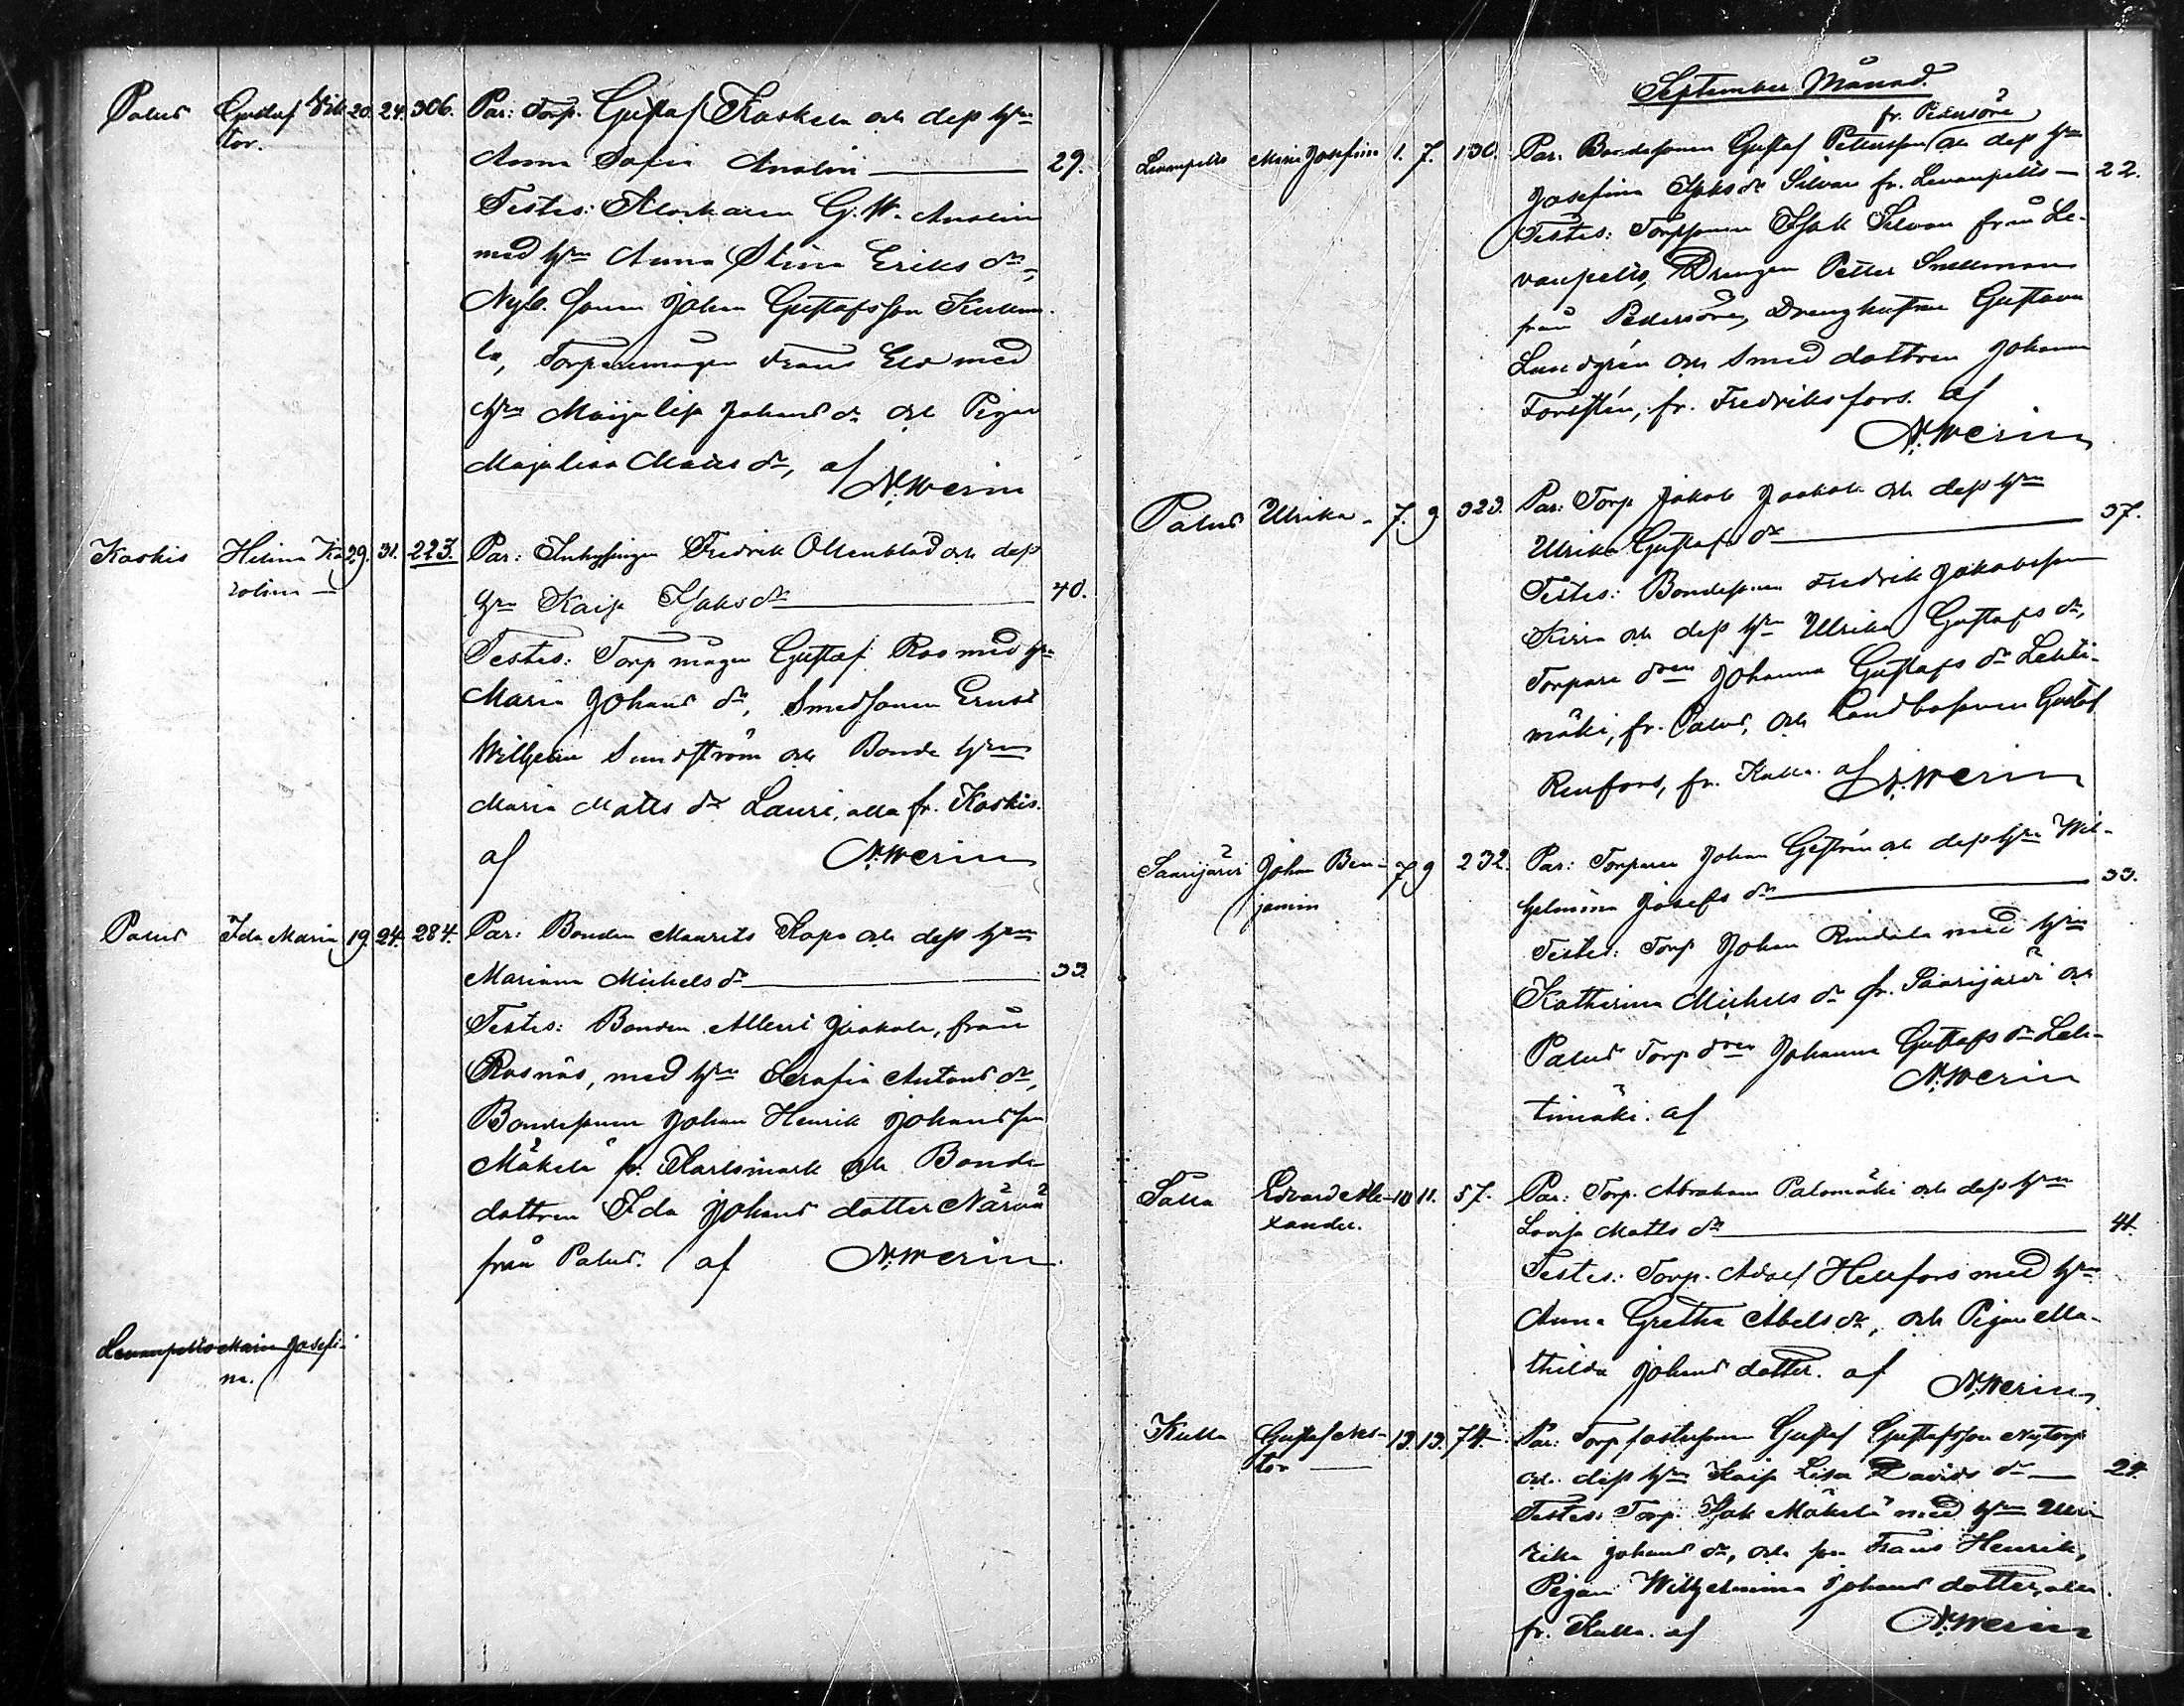 Palus Gustaf Vik 20. 24. 306. Par: Torp. Gustaf Koskela och dess h:ru
tor. Anna Sofia Analin 29.
Testes: Klockaren G. W. Analin
med h:ru Anna Stina Eriks dr,
Nyb. sonen Johan Gustafsson Kullan-
la, Torparemågen Frans Elo med
h:ru Maija Lisa Johans dr och Pigan
Maja Lisa Matts dr, af
N. Werin
Koskis Helina Ka 29. 31. 223. Par: Inhysingen Fredrik Ollenblad och dess
rolina h:ru Kaisa Isaks dr 40.
Testes: Torp mågen Gustaf Roo med h:ru
Maria Johans dr, Smedsonen Ernst
Wilhelm Sundström och Bonde h:run
Maria Matts dr Lauri, alla fr. Koskis.
af N. Werin
Palus Ida Maria 19. 24. 284. Par: Bonden Maurits Kopo och dess h:ru
Mariana Michels dr 33.
Testes: Bonden Albert Jaakola, från
Rosnäs, med h:ru Serafia Antons dr,
Bondesonen Johan Henrik Johansson
Mäkelä fr. Karlsmark och Bonde
dottren Ida Johans dotter Närvä
från Palus. af N. Werin.
Levanpelto Maria Josefi-
na.
September Månad.
fr. Pedersöre
Levanpelto Maria Josefina 1. 7. 130. Par. Bondesonen Gustaf Pettersson och dess h:ru
Josefina Isaks dr Silvan fr. Levanpelto 22.
Testes: Torpsonen Isak Silvan från Le-
vanpelto, Drengen Petter Snellman
från Pedersöre, Drenghustrun Gustava
Lundgrén och Smed dottren Johanna
Forsstén, fr. Fredriksfors. af
N. Werin
Palus Ulrika 7. 9 323. Par: Torp Jakob Jaakola och dess h:ru
Ulrika Gustafs dr 37.
Testes: Bondesonen Fredrik Jakobsson
Kivra och dess h:ru Ulrika Gustafs dr,
Torpare dren Johanna Gustafs dr Lehti-
mäki, fr. Palus, och Landbosonen Gustaf
Renfors, fr. Kulla. af N. Werin
Saarijärvi Johan Ben- 7 9 232. Par: Torparen Johan Gestrin och dess h:ru Wil-
jamin helmina Josefs dr 33.
Testes: Torp Johan Rindala med h:ru
Katharina Michels dr fr. Saarijärvi och
Palus Torp dren Johanna Gustafs dr Leh-
timäki. af
N. Werin
Salla Edvard Ale- 10 11. 57. Par: Torp. Abraham Palomäki och dess h:ru
xander. Lovisa Matts dr 41.
Testes: Torp. Adolf Hellfors med h:ru
Anna Gretha Abels dr, och Pigan Ma-
thilda Johans dotter. af N. Werin
Kulla Gustaf Nes- 13. 13. 74. Par: Torp fostersonen Gustaf Gustafsson Nytorp
tor och dess h:ru Kaisa Lisa Davids dr 24.
Testes: Torp. Isak Mäkelä med h:ru Ulri-
rika Johans dr, och son Frans Henrik,
Pigan Wilhelmina Johans dotter, alla
fr. Kulla. af N. Werin